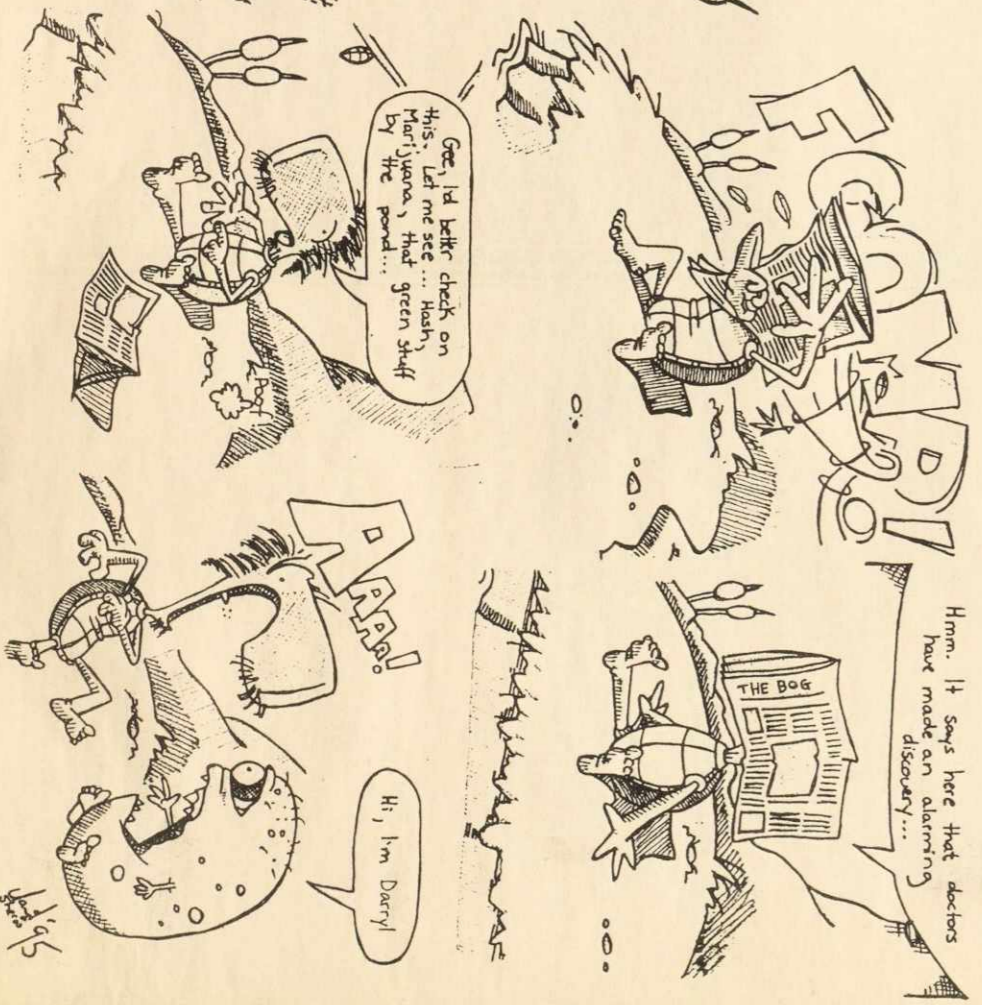 FOOMP!
Hmm. It says here that doctors
have made an alarming
discovery...
THE BOG
Gee, I'd better check on
this. Let me see... Hash,
Marijuana, that green stuff
by the pond...
Poof
AAAa!
Hi, I'm Darryl
'95